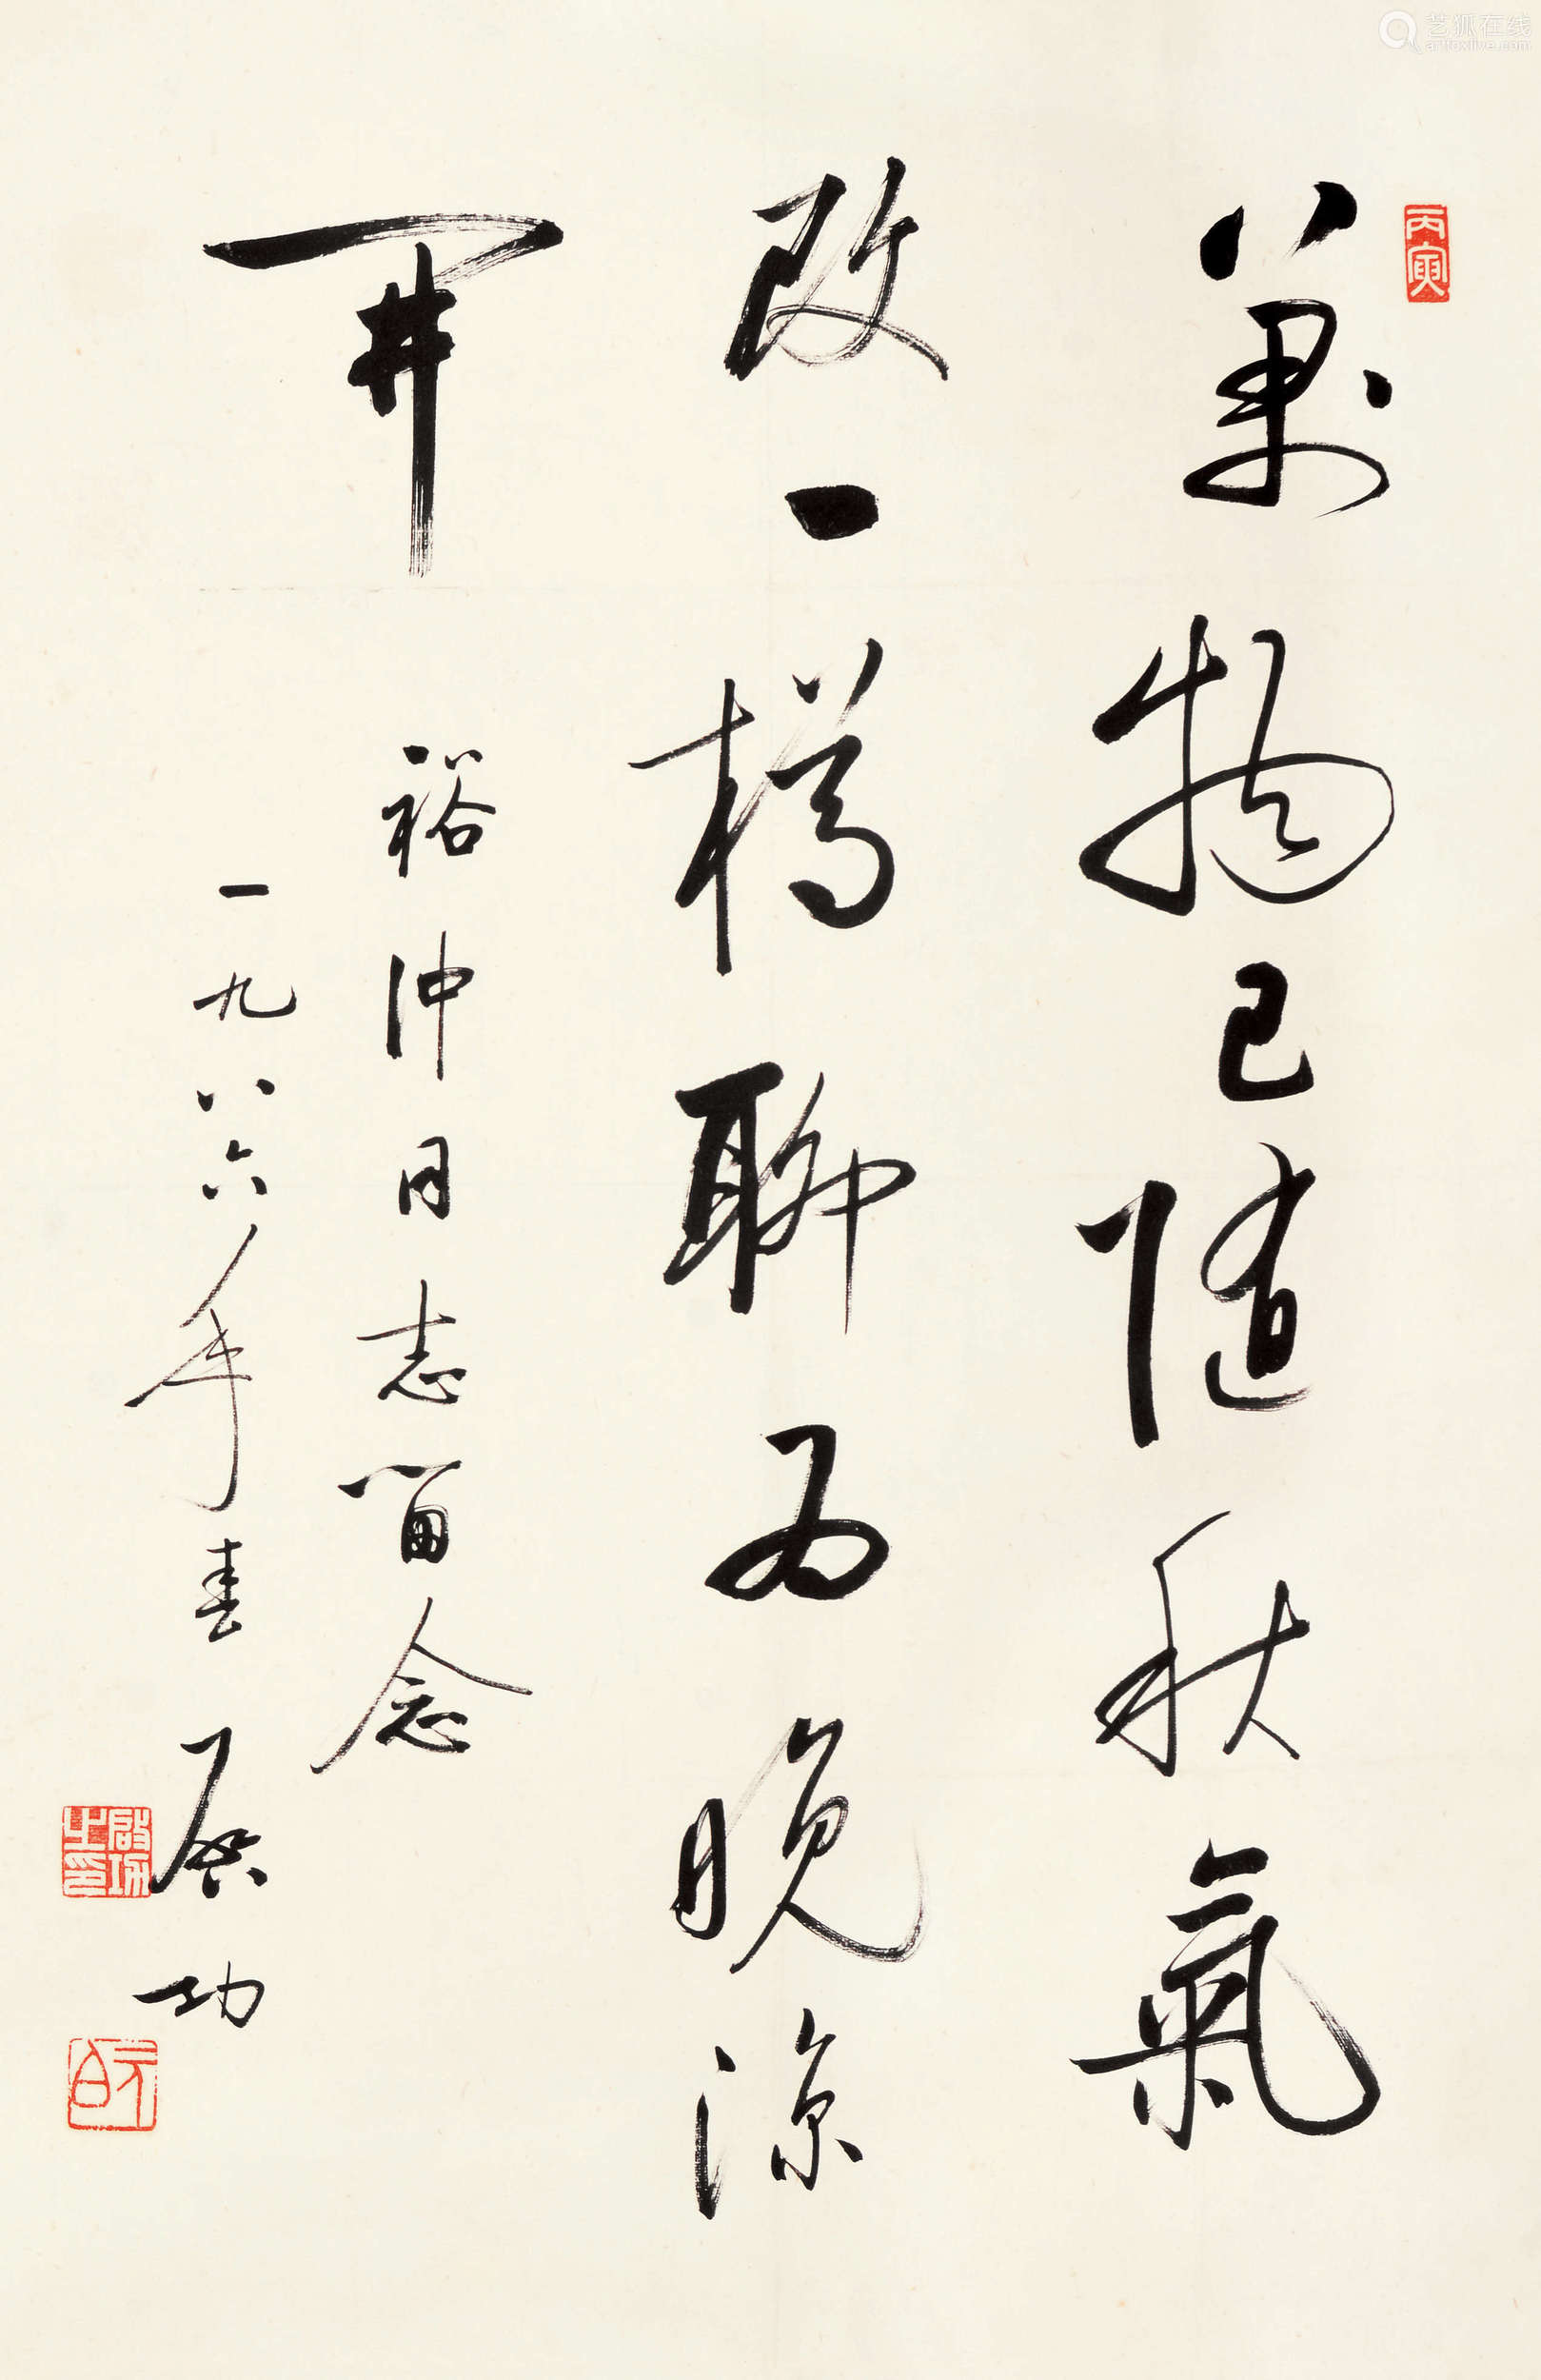 丙寅
萬物已隨秋氣
改一樽聊為晚涼
開
裕仲同志留念
一九八六年春 啟功
啟功之印
元白
艺狐在线
artfoxlive.com